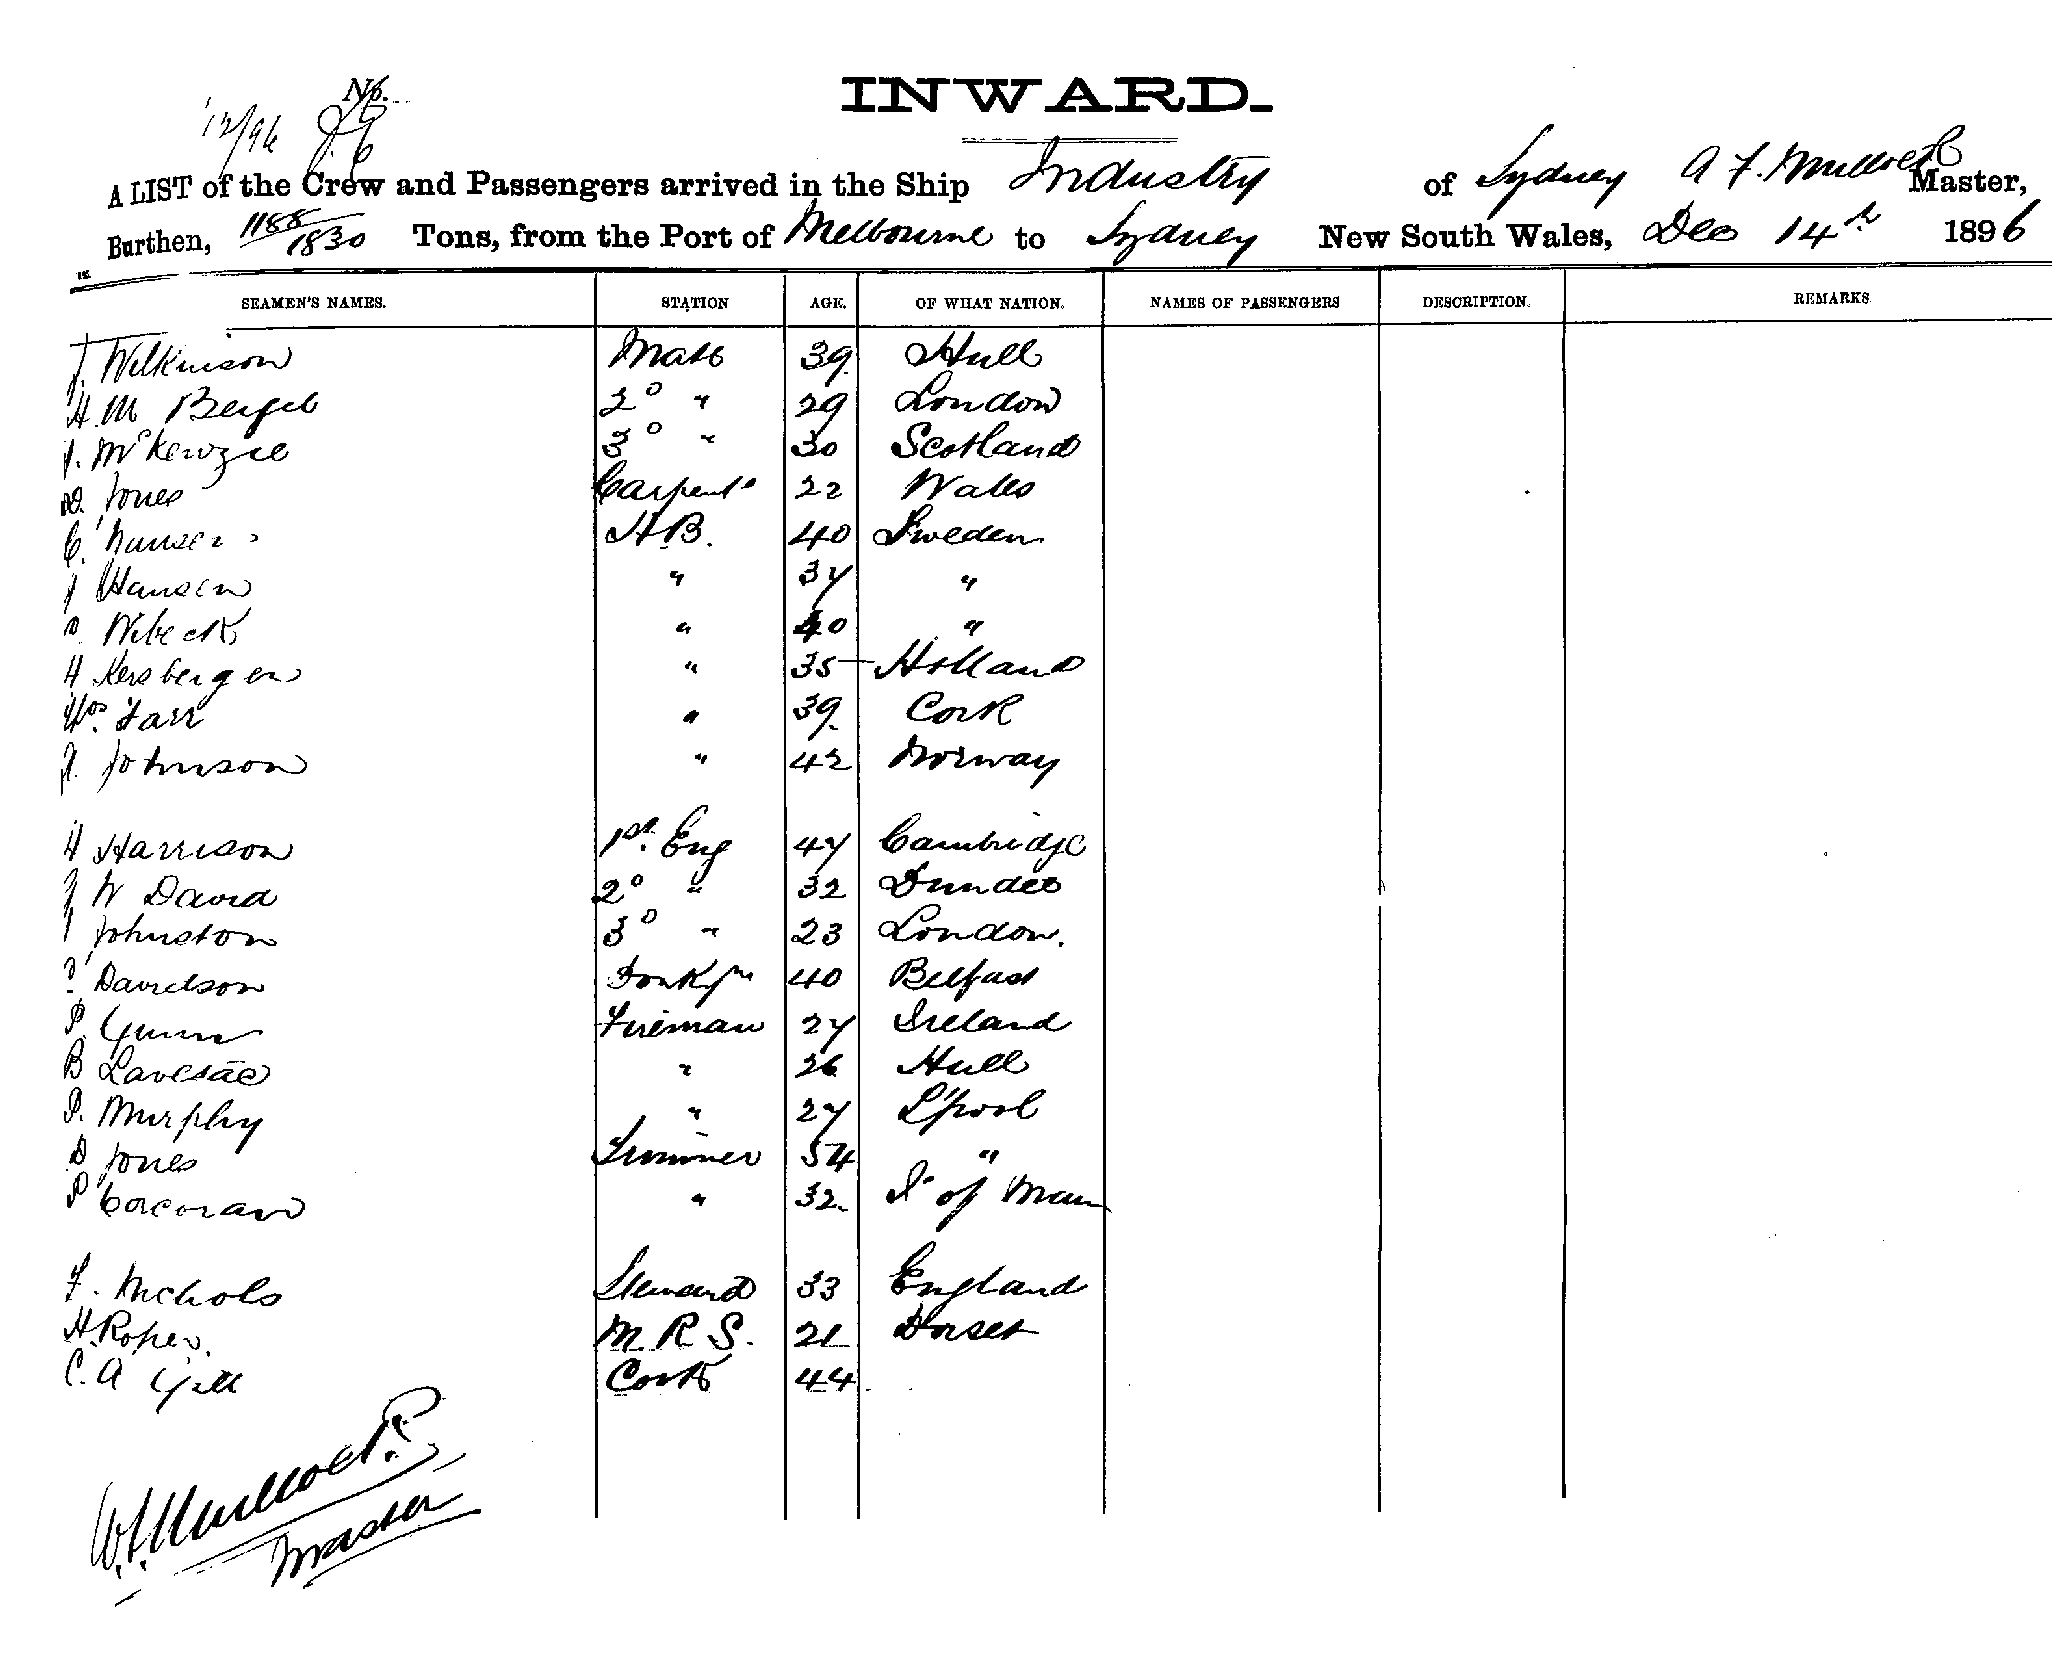 INWARD.
No.
12/96
A LIST of the Crew and Passengers arrived in the Ship Industry of Sydney A F. Mullock Master,
Burthen, 1188/1830 Tons, from the Port of Melbourne to Sydney New South Wales, Dec 14th 1896
SEAMEN'S NAMES. STATION AGE. OF WHAT NATION. NAMES OF PASSENGERS DESCRIPTION. REMARKS
J. Wilkinson Mate 39 Hull
H. M 2° " 29 London
J. McKenzie 3° " 30 Scotland
D. Jones Carpentr 22 Wales
C. Hansen A.B. 40 Sweden
J Hansen " 37 "
Wibeck " 40 "
H Kersbergen " 35 Holland
Farr " 39 Cork
J. Johnson " 42 Norway
H Harrison 1st Eng 47 Cambridge
J W David 2° " 32 Dundee
J Johnston 3° " 23 London.
Davidson Donkyn 40 Belfast
P. Gunn Fireman 27 Ireland
B " 26 Hull
P. Murphy " 27 L'pool
D Jones Trimmer 54 "
P Corcoran " 32 I. of Man
F. Nichols Steward 33 England
H. Roper. M R S. 21 Dorset
C. A Gill Cook 44
Mullock
Master